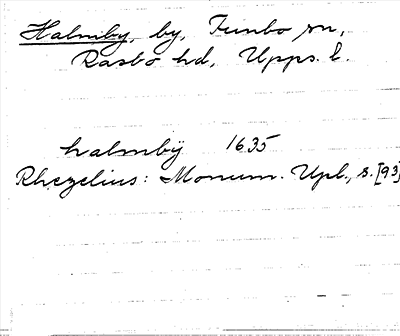 Halmby, by, Funbo sn,
Rasbo hd, Upps. l.
halmbÿ 1635
Rhezelius: Monum. Upl., s. [93]